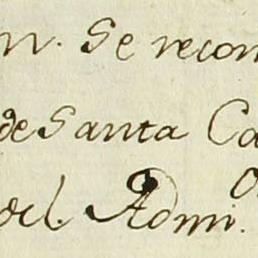 n. Se recon
de Santa Ca
del. Admi.